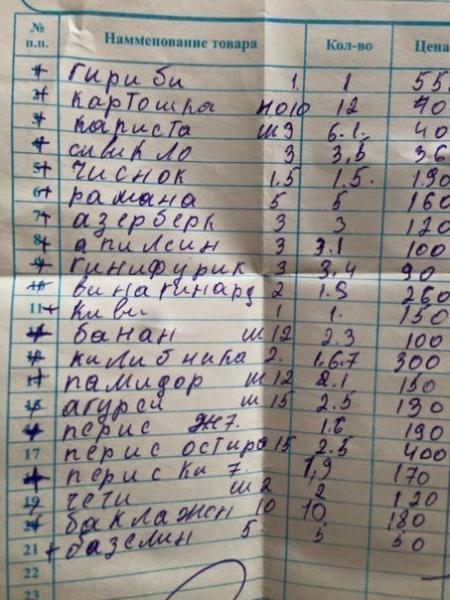 № п.п. Намменование товара Кол-во Цена
1 гириби 1. 1 55
2 картошка 10 12 40
3 каписта ш 3 6.1. 40
4 сивикло 3 3,5 36
5 чиснок 1.5 1.5. 190
6 рамана 5 5 160
7 азерберк 3 3 120
8 апилсин 3 3.1 100
9 гинифурик 3 3,4 90
10 винагинард 2 1.9 260
11 киви 1 1. 150
12 банан ш 12 2.3 100
13 килибника 2. 1,6.7 300
14 памидор ш 12 8.1 150
15 агурси ш 15 2.5 130
16 перис ж7. 1.8 190
17 перис остиро 15 2.5 400
18 перис ки 7. 1,9 170
19 чети ш 2 2 120
20 баклажон 10 10 180
21 базелин 5 5 50
22
23